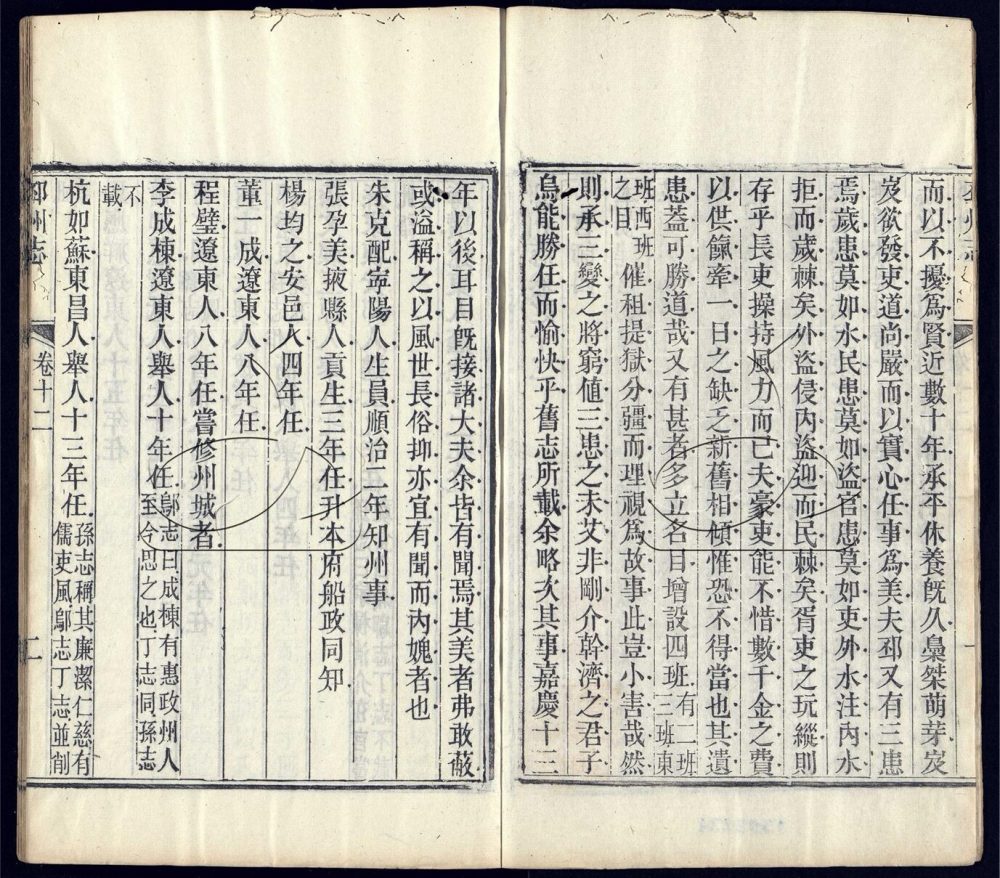 而以不擾爲賢近數十年承平休養旣久梟桀萌芽岌
岌欲發吏道尚嚴而以實心任事爲美夫邳又有三患
焉歲患莫如水民患莫如盜官患莫如吏外水注內水
拒而歲棘矣外盜侵內盜迎而民棘矣胥吏之玩縱則
存乎長吏操持風力而已夫豪吏能不惜數千金之費
以供餼牽一日之缺乏新舊相傾惟恐不得當也其遺
患蓋可勝道哉又有甚者多立名目增設四班有二班三班東
班西班之目催租提獄分疆而理視爲故事此豈小害哉然
則承三變之將窮值三患之未艾非剛介幹濟之君子
烏能勝任而愉快乎舊志所載余略次其事嘉慶十三
年以後耳目旣接諸大夫余皆有聞焉其美者弗敢蔽
或溢稱之以風世長俗抑亦宜有聞而內媿者也
朱克配寧陽人生員順治二年知州事
張孕美掖縣人貢生三年任升本府船政同知
楊均之安邑人四年任
董一成遼東人八年任
程璧遼東人八年任嘗修州城者
李成棟遼東人舉人十年任鄔志曰成棟有惠政州人至今思之也丁志同孫志
不載
杭如蘇東昌人舉人十三年任孫志稱其廉潔仁慈有儒吏風鄔志丁志並削
邳州志
卷十二
二